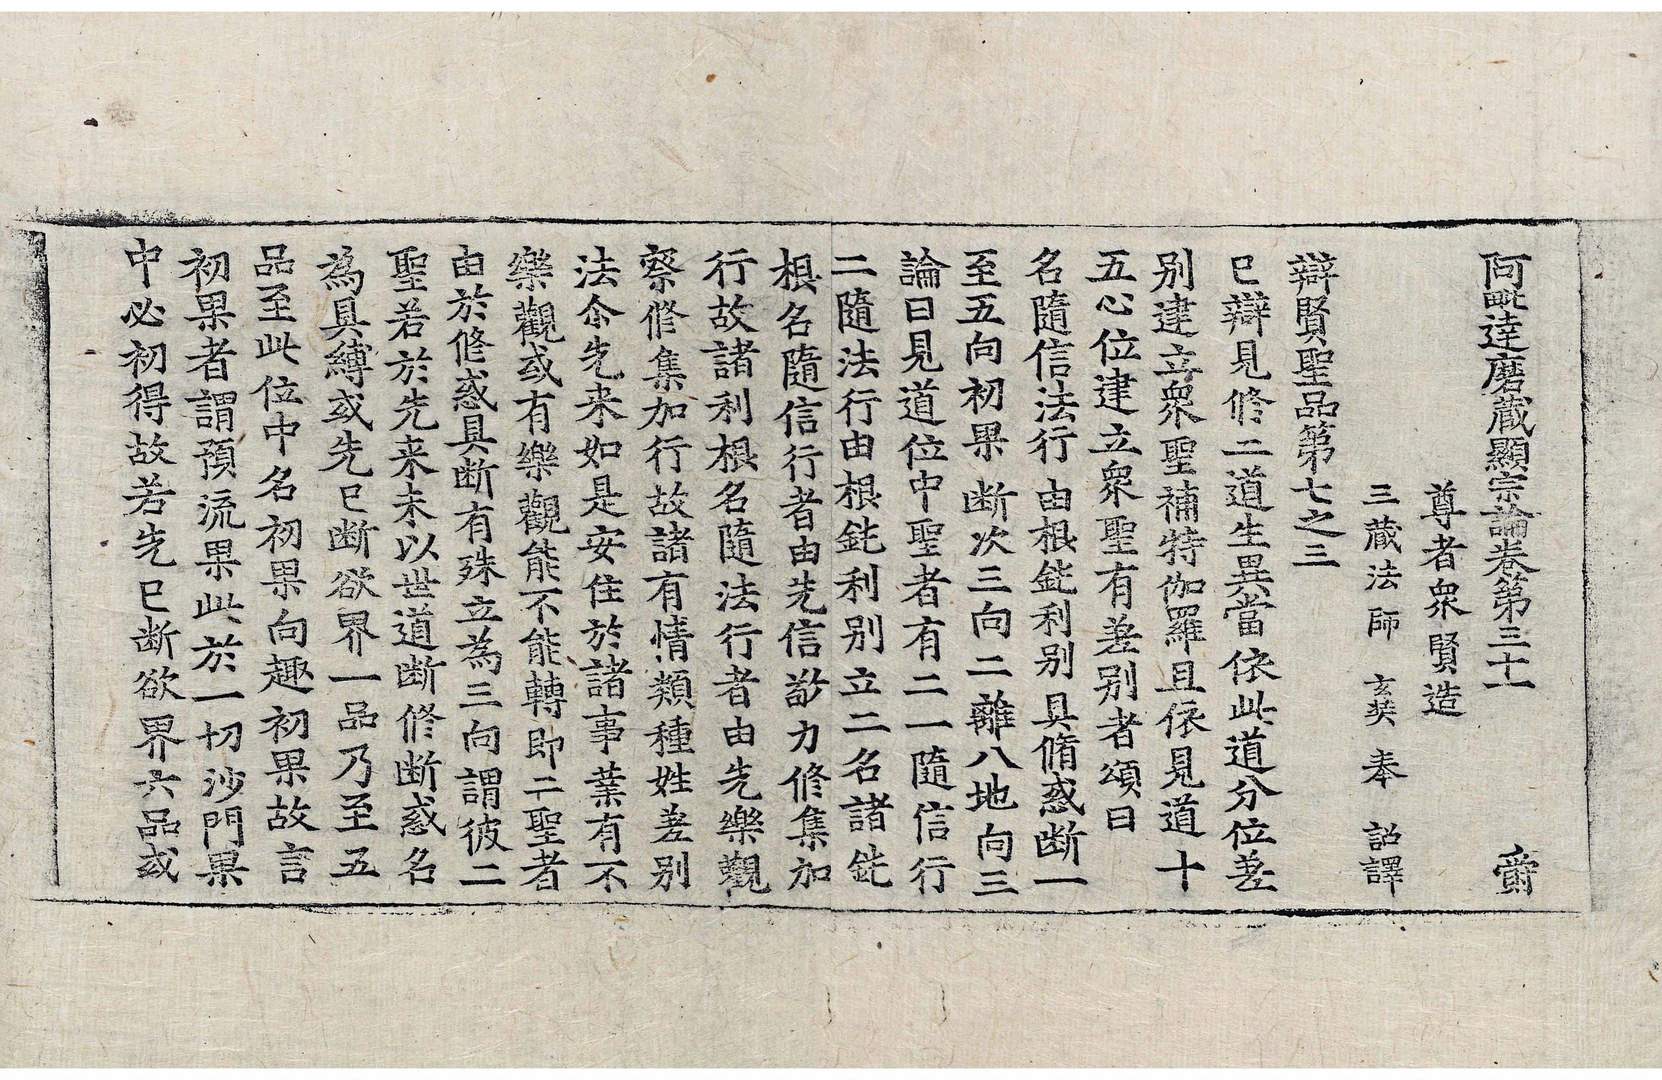 阿毗達磨藏顯宗論卷第三十一 爵
尊者衆賢造
三藏法師 玄奘 奉 詔譯
辯賢聖品第七之三
已辯見修二道生異當依此道分位差
別建立衆聖補特伽羅且依見道十
五心位建立衆聖有差別者頌曰
名隨信法行 由根鈍利別 具脩惑斷一
至五向初果 斷次三向二 離八地向三
論曰見道位中聖者有二一隨信行
二隨法行由根鈍利別立二名諸鈍
根名隨信行者由先信敬力修集加
行故諸利根名隨法行者由先樂觀
察修集加行故諸有情類種姓差別
法尒先来如是安住於諸事業有不
樂觀或有樂觀能不能轉即二聖者
由於修惑具断有殊立為三向謂彼二
聖若於先来未以世道断修断惑名
為具縛或先已断欲界一品乃至五
品至此位中名初果向趣初果故言
初果者謂預流果此於一切沙門果
中必初得故若先已断欲界六品或